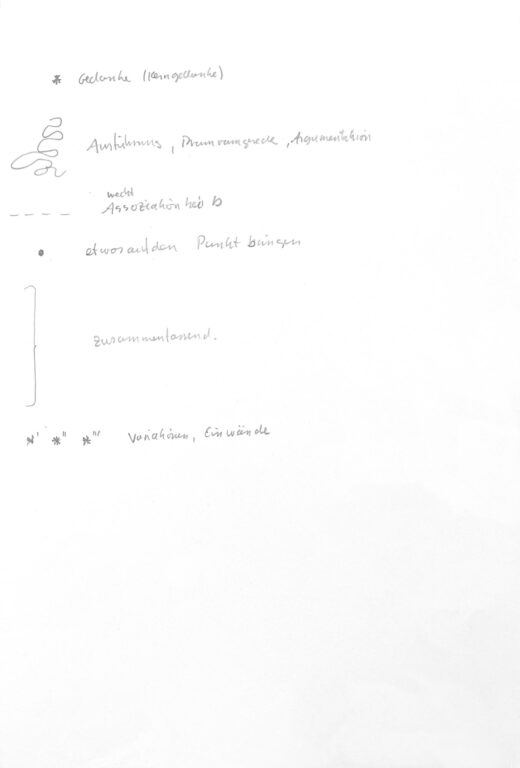 * Gedanke (Kerngedanke)
Ausführung, Drumrumgerede, Argumentation
weckt
Assoziation bei b
• etwas auf den Punkt bringen
zusammenfassend.
*' *" *"' Variationen, Einwände